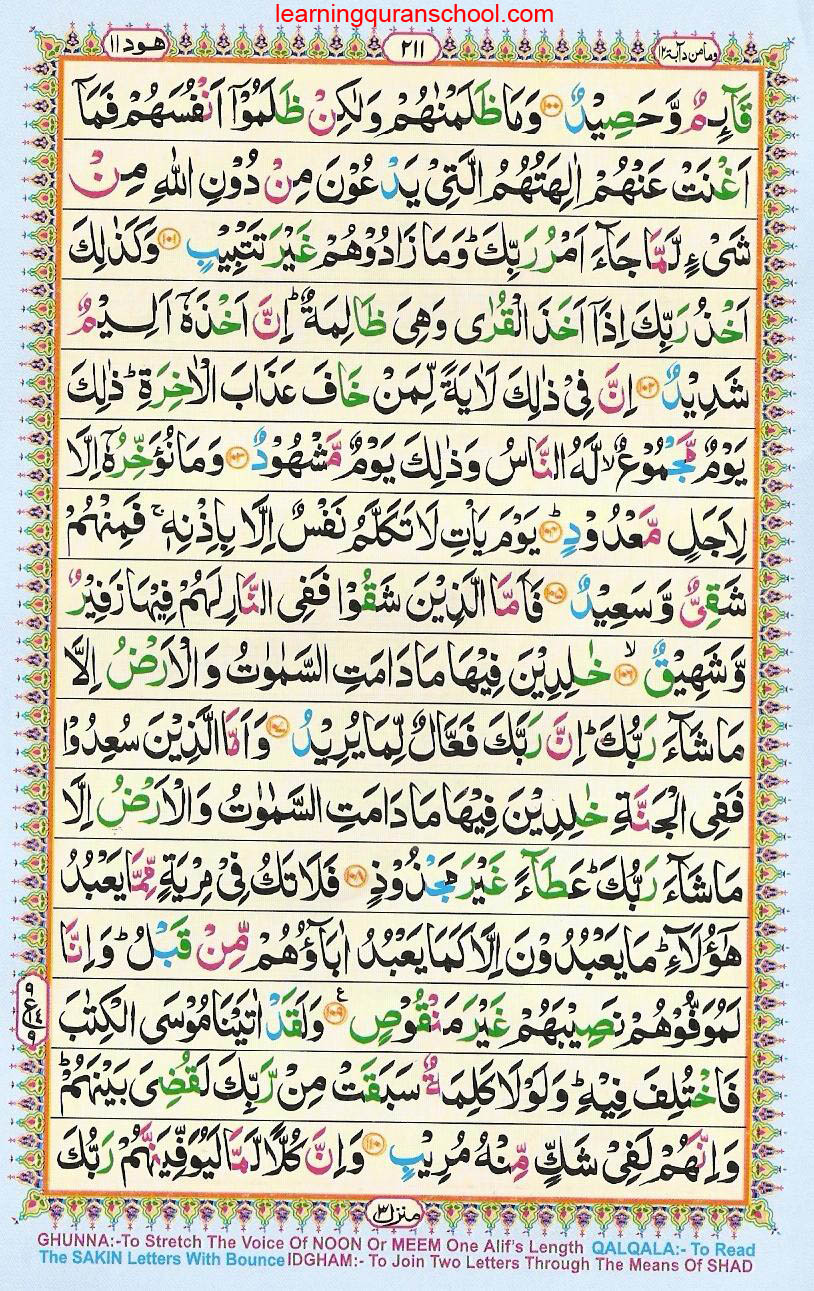 learningquranschool.com
ومامن دآبة ١٢
٢١١
هود ١١
قَآئِمٌ وَّحَصِیْدٌ ﴿۱۰۰﴾ وَمَا ظَلَمْنٰهُمْ وَلٰکِنْ ظَلَمُوْۤا اَنْفُسَهُمْ فَمَاۤ
اَغْنَتْ عَنْهُمْ اٰلِهَتُهُمُ الَّتِیْ یَدْعُوْنَ مِنْ دُوْنِ اللّٰهِ مِنْ
شَیْءٍ لَّمَّا جَآءَ اَمْرُ رَبِّکَ ؕ وَمَا زَادُوْهُمْ غَیْرَ تَتْبِیْبٍ ﴿۱۰۱﴾ وَکَذٰلِکَ
اَخْذُ رَبِّکَ اِذَاۤ اَخَذَ الْقُرٰی وَهِیَ ظَالِمَةٌ ؕ اِنَّ اَخْذَهٗۤ اَلِیْمٌ
شَدِیْدٌ ﴿۱۰۲﴾ اِنَّ فِیْ ذٰلِکَ لَاٰیَةً لِّمَنْ خَافَ عَذَابَ الْاٰخِرَةِ ؕ ذٰلِکَ
یَوْمٌ مَّجْمُوْعٌ ۙ لَّهُ النَّاسُ وَذٰلِکَ یَوْمٌ مَّشْهُوْدٌ ﴿۱۰۳﴾ وَمَا نُؤَخِّرُهٗۤ اِلَّا
لِاَجَلٍ مَّعْدُوْدٍ ﴿۱۰۴﴾ؕ یَوْمَ یَاْتِ لَا تَکَلَّمُ نَفْسٌ اِلَّا بِاِذْنِهٖ ۚ فَمِنْهُمْ
شَقِیٌّ وَّسَعِیْدٌ ﴿۱۰۵﴾ فَاَمَّا الَّذِیْنَ شَقُوْا فَفِی النَّارِ لَهُمْ فِیْهَا زَفِیْرٌ
وَّشَهِیْقٌ ﴿۱۰۶﴾ۙ خٰلِدِیْنَ فِیْهَا مَا دَامَتِ السَّمٰوٰتُ وَالْاَرْضُ اِلَّا
مَا شَآءَ رَبُّکَ ؕ اِنَّ رَبَّکَ فَعَّالٌ لِّمَا یُرِیْدُ ﴿۱۰۷﴾ وَاَمَّا الَّذِیْنَ سُعِدُوْا
فَفِی الْجَنَّةِ خٰلِدِیْنَ فِیْهَا مَا دَامَتِ السَّمٰوٰتُ وَالْاَرْضُ اِلَّا
مَا شَآءَ رَبُّکَ ؕ عَطَآءً غَیْرَ مَجْذُوْذٍ ﴿۱۰۸﴾ فَلَا تَکُ فِیْ مِرْیَةٍ مِّمَّا یَعْبُدُ
هٰۤؤُلَآءِ ؕ مَا یَعْبُدُوْنَ اِلَّا کَمَا یَعْبُدُ اٰبَآؤُهُمْ مِّنْ قَبْلُ ؕ وَاِنَّا
لَمُوَفُّوْهُمْ نَصِیْبَهُمْ غَیْرَ مَنْقُوْصٍ ﴿۱۰۹﴾ع وَلَقَدْ اٰتَیْنَا مُوْسَی الْکِتٰبَ
٩
ع ١٤
٩
فَاخْتُلِفَ فِیْهِ ؕ وَلَوْلَا کَلِمَةٌ سَبَقَتْ مِنْ رَّبِّکَ لَقُضِیَ بَیْنَهُمْ ؕ
وَاِنَّهُمْ لَفِیْ شَکٍّ مِّنْهُ مُرِیْبٍ ﴿۱۱۰﴾ وَاِنَّ کُلًّا لَّمَّا لَیُوَفِّیَنَّهُمْ رَبُّکَ
منزل ٣
GHUNNA:-To Stretch The Voice Of NOON Or MEEM One Alif's Length QALQALA:- To Read
The SAKIN Letters With Bounce IDGHAM:- To Join Two Letters Through The Means Of SHAD